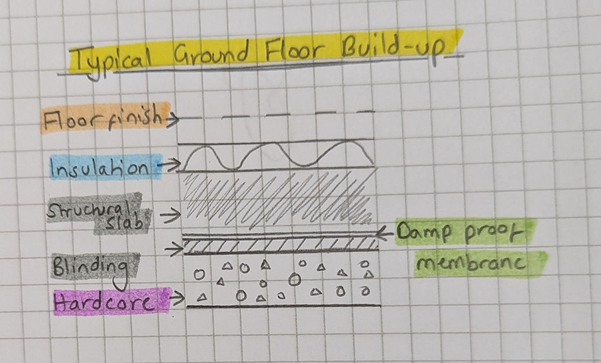 Typical Ground Floor Build-up
Floor finish
Insulation
Structural
slab
Damp proof
membrane
Blinding
Hardcore